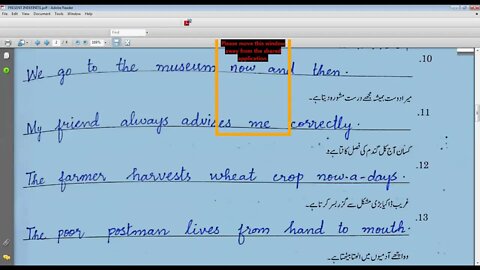 PRESENT INDEFINITE.pdf - Adobe Reader
Please move this window
away from the shared
application
.10
We go to the museum now and then.
میرا دوست ہمیشہ مجھے درست مشورہ دیتا ہے۔
.11
My friend always advises me correctly.
کسان آج کل گندم کی فصل کاٹتا ہے۔
.12
The farmer harvests wheat crop now-a-days.
غریب ڈاکیا بڑی مشکل سے گزر بسر کرتا ہے۔
.13
The poor postman lives from hand to mouth.
وہ اچھے آدمیوں میں اٹھتا بیٹھتا ہے۔